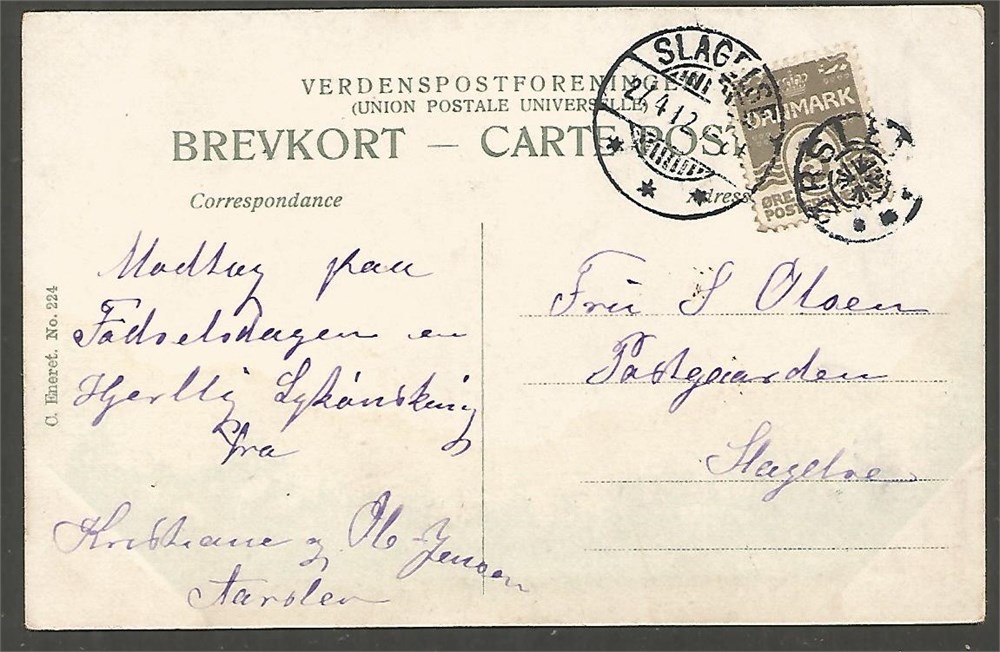 VERDENSPOSTFORENINGEN
(UNION POSTALE UNIVERSELLE)
BREVKORT — CARTE POSTALE
SLAGELSE
27.4.12
DANMARK
ØRE
POST
ÅRSLEV
Correspondance
Adresse
C. Eneret. No. 224
Modtag paa
Fødselsdagen en
Hjertlig Lykønskning
fra
Kristiane og Ol Jensen
Aarslev
Fru S Olsen
Postgaarden
Slagelse